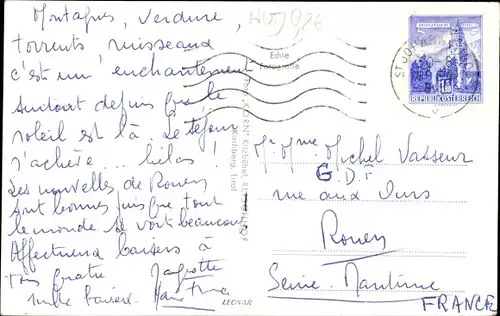 Montagnes, Verdure,
torrents ruisseaux
c'est un enchantement
surtout depuis que le
soleil est là. Le séjour
s'achève... hélas!
Les nouvelles de Rouen
sont bonnes puisque tout
le monde se voit beaucoup
Affectueux baisers à
tous quatre
mille baisers.
Echte
Fotografie
Kitzbühel
Tirol
LEONAR
REPUBLIK ÖSTERREICH
ST JO
Mr Mme Michel Vasseur
rue aux Ours
Rouen
Seine Maritime
FRANCE